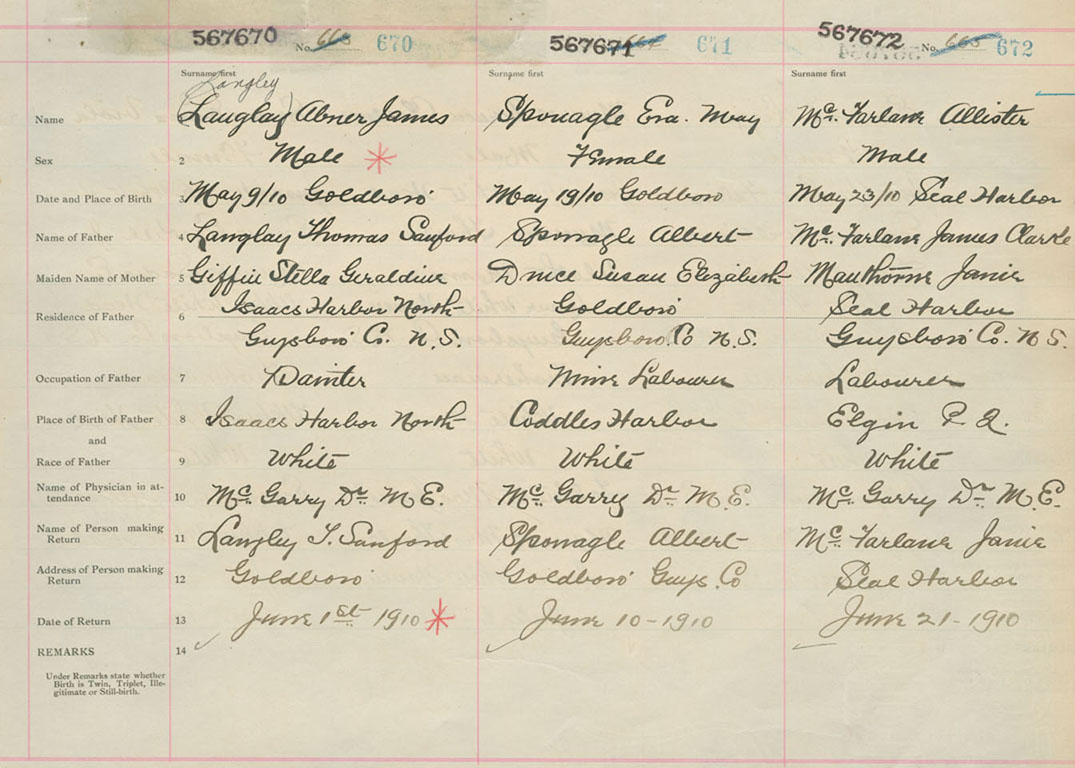 567670 No. 665 670 567671 664 671 567672 No. 665 672
Surname first Surname first Surname first
Langley
Name (Langlay) Abner James Sponagle Eva. May Mc. Farlane Allister
Sex 2 Male * Female Male
Date and Place of Birth 3 May 9/10 Goldboro' May 19/10 Goldboro May 23/10 Seal Harbor
Name of Father 4 Langlay Thomas Sanford Sponagle Albert Mc. Farlane James Clarke
Maiden Name of Mother 5 Giffin Stella Geraldine Druce Susan Elizabeth Manthorne Janie
Residence of Father 6 Isaacs Harbor North Goldboro' Seal Harbor
Guysboro' Co. N.S. Guysboro. Co N.S. Guysboro' Co. N S.
Occupation of Father 7 Painter Mine Labourer Labourer
Place of Birth of Father 8 Isaacs Harbor North Coddles Harbor Elgin P. Q.
and
Race of Father 9 White White White
Name of Physician in at-
tendance 10 Mc. Garry Dr. M E. Mc. Garry Dr. M. E. Mc. Garry Dr. M. E.
Name of Person making
Return 11 Langley T. Sanford Sponagle Albert Mc. Farlane Janie
Address of Person making
Return 12 Goldboro' Goldboro' Guys. Co Seal Harbor
Date of Return 13 June 1st 1910 * June 10-1910 June 21-1910
REMARKS 14
Under Remarks state whether
Birth is Twin, Triplet, Ille-
gitimate or Still-birth.